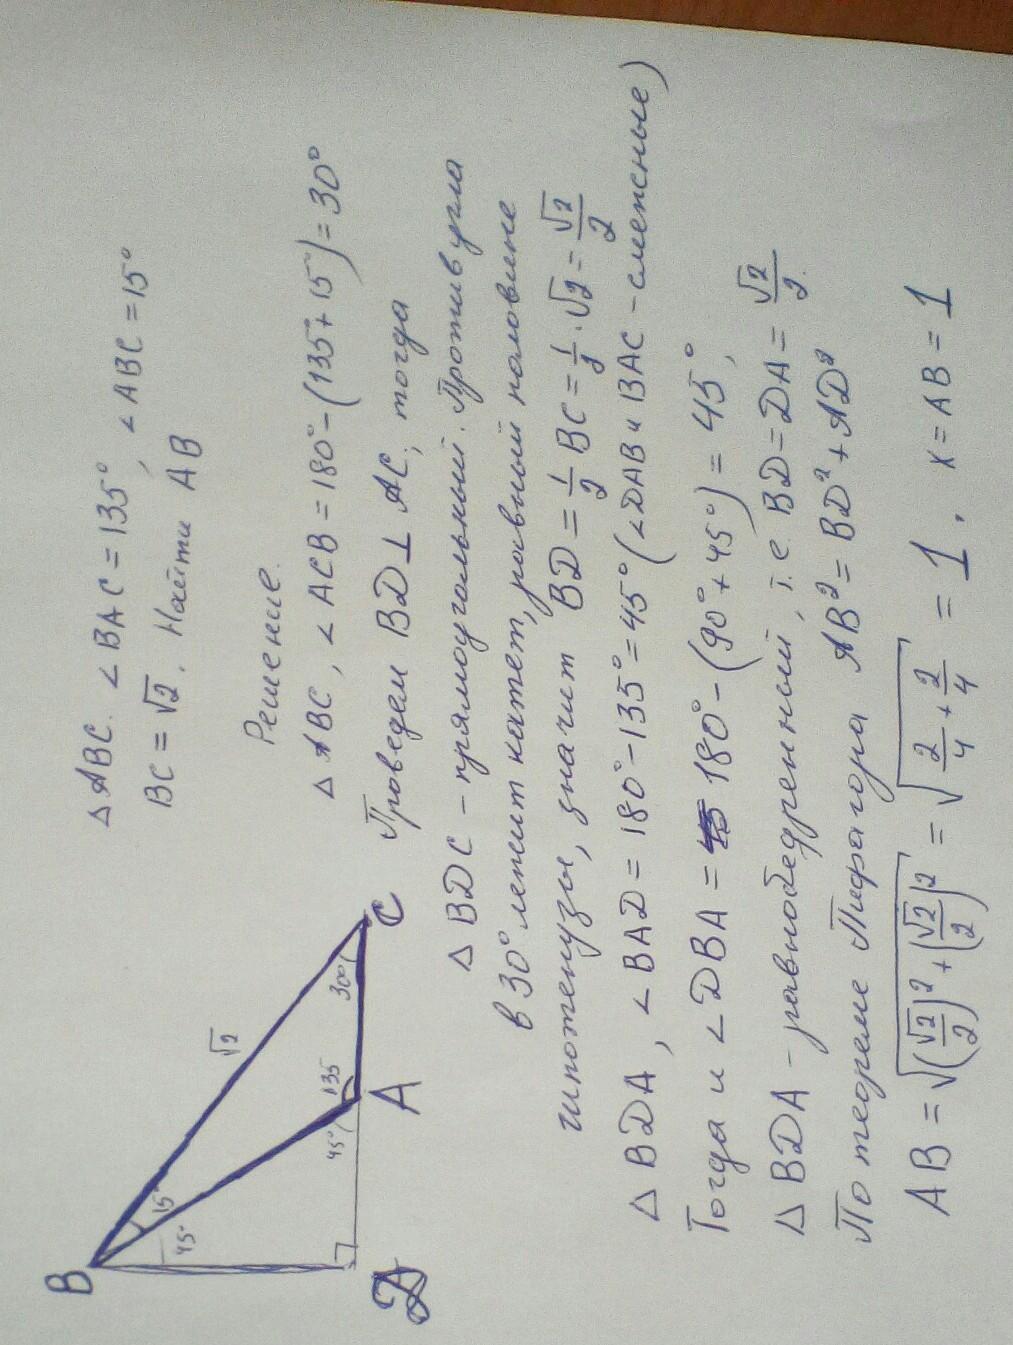 △ ABC. ∠ BAC = 135°, ∠ ABC = 15°
BC = √2. Найти AB
Решение.
△ ABC, ∠ ACB = 180° - (135° + 15°) = 30°
Проведем BD ⊥ AC, тогда
△ BDC - прямоугольный. Против угла
в 30° лежит катет, равный половине
гипотенузы, значит BD = 1/2 BC = 1/2 · √2 = √2/2
△ BDA, ∠ BAD = 180° - 135° = 45° (∠DAB и BAC - смежные)
Тогда и ∠ DBA = 180° - (90° + 45°) = 45°,
△ BDA - равнобедренный, т.е. BD = DA = √2/2.
По теореме Пифагора AB² = BD² + AD²
AB = √((√2/2)² + (√2/2)²) = √(2/4 + 2/4) = 1. x = AB = 1
B
15°
45°
√2
135
45°
300
D
A
C